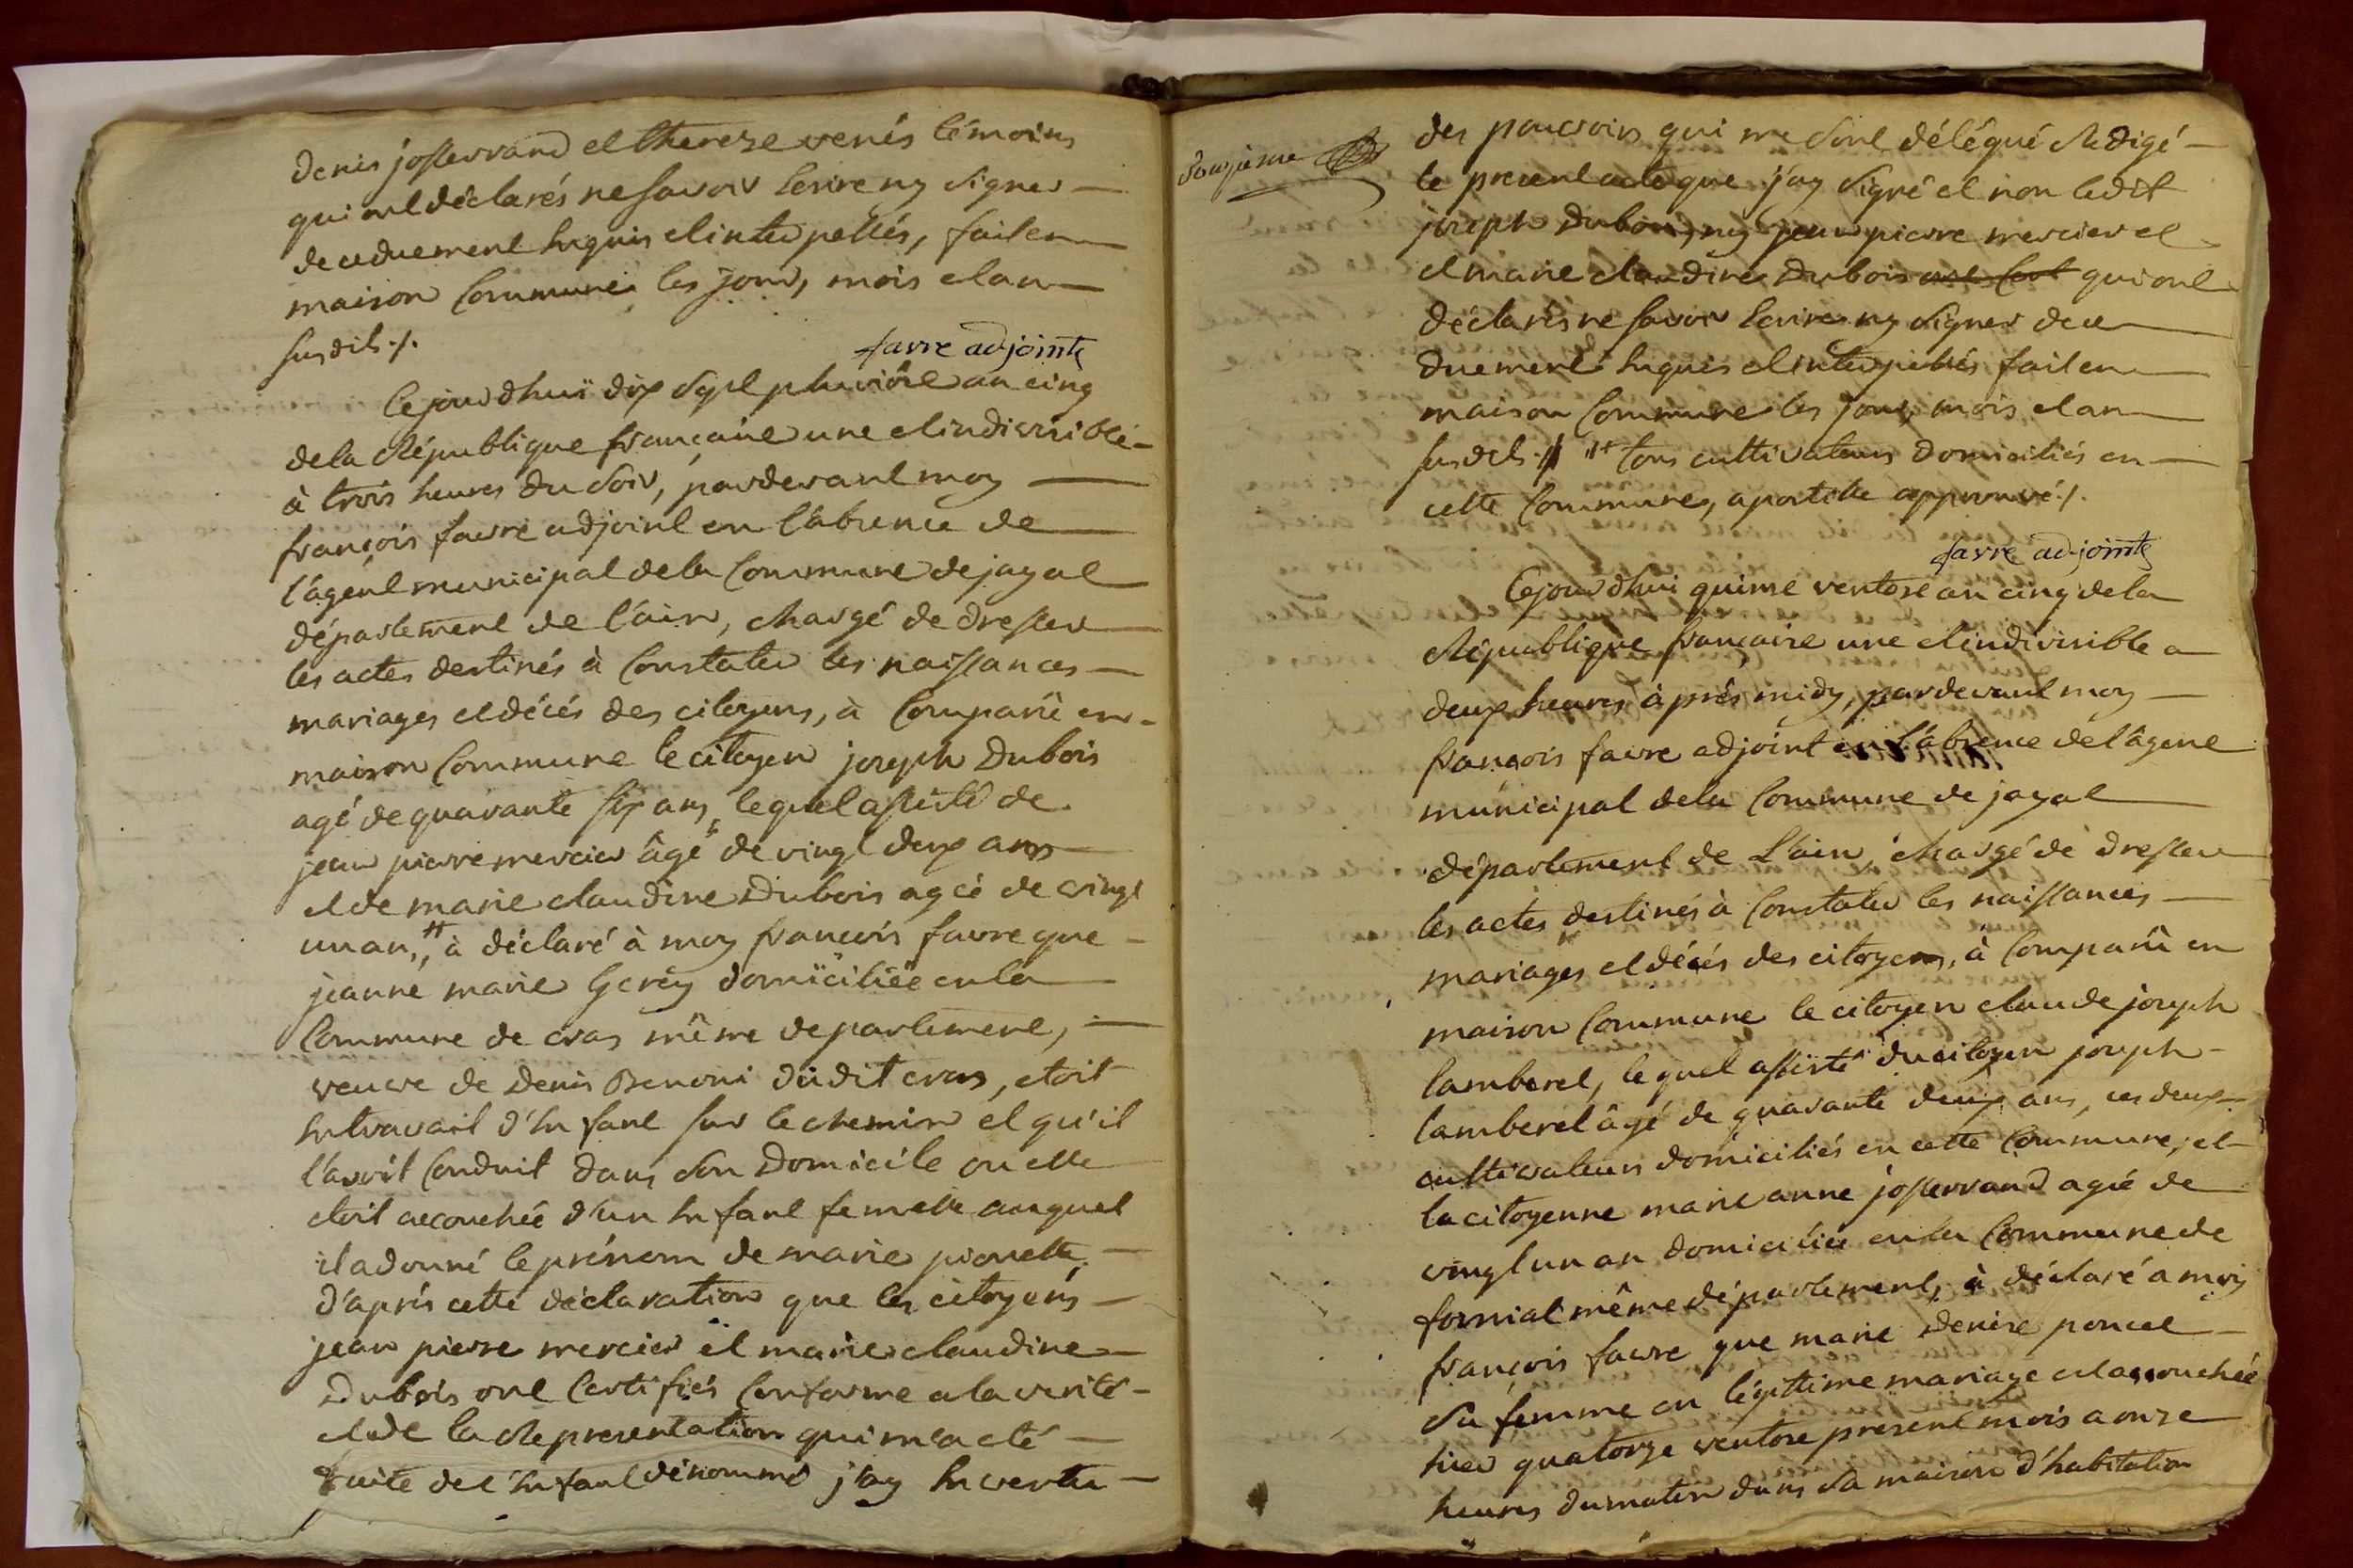 denis josservand et thereze venés témoins
qui ont déclarés ne savoir Ecrire ny signer
de ce duement Enquis et interpellés, fait en
maison Commune les jour, mois et an
susdits ./.
favre adjoint
Cejourdhui dix sept pluviôse an cinq
de la République française une et indivisible
à trois heures du soir, pardevant moy
françois favre adjoint en l'absence de
l'agent municipal de la Commune de jayat
département de l'ain, chargé de dresser
les actes destinés à Constater les naissances
mariages et décés des citoyens, à Comparû en
maison Commune le citoyen joseph Dubois
agé de quarante six ans, lequel assisté de
jean pierre mercier âgé de vingt deux ans
et de marie claudine Dubois agée de vingt
un an, # à déclaré à moy françois favre que
jeanne marie Gerey domiciliée en la
Commune de cras même departement,
veuve de Denis Benoni dudit cras, etoit
En travail d'Enfant sur le chemin et qu'il
l'avoit Conduit dans son Domicile ou elle
etoit accouchée d'un Enfant femelle auquel
il a donné le prénom de marie pierrette,
d'après cette déclaration que les citoyens
jean pierre mercier et marie claudine
Dubois ont Certifiés Conforme a la verité
et de la Representation qui m'a eté
faite de l'Enfant dénommé j'ay En vertu
douzieme
des pouvoirs qui me sont délégué Redigé
le present acte que j'ay signé et non ledit
joseph Dubois, ny jean pierre mercier et
et marie claudine Dubois qui ont
déclarés ne savoir Ecrire ny signer de ce
duement Enquis et interpellés fait en
maison Commune les jour, mois et an
susdits ./. # tous cultivateurs domiciliés en
cette Commune, apostille approuvé ./.
favre adjoint
Cejourdhui quinze ventose an cinq de la
République française une et indivisible a
deux heures après midy, pardevant moy
françois favre adjoint en l'absence de l'âgent
municipal de la Commune de jayat
département de L'ain, chargé de dresser
les actes destinés à Constater les naissances
mariages et décés des citoyens, à Comparû en
maison Commune le citoyen claude joseph
lamberel, lequel assisté du citoyen joseph
lamberel âgé de quarante deux ans, ces deux
cultivateurs domiciliés en cette Commune, et
la citoyenne marie anne josservand agée de
vingt un an domiciliée en la Commune de
forniat même département, à déclaré a moy
françois favre que marie Denise poncet
sa femme en légittime mariage est accouchée
hier quatorze ventose present mois a onze
heures du matin dans sa maison d'habitation